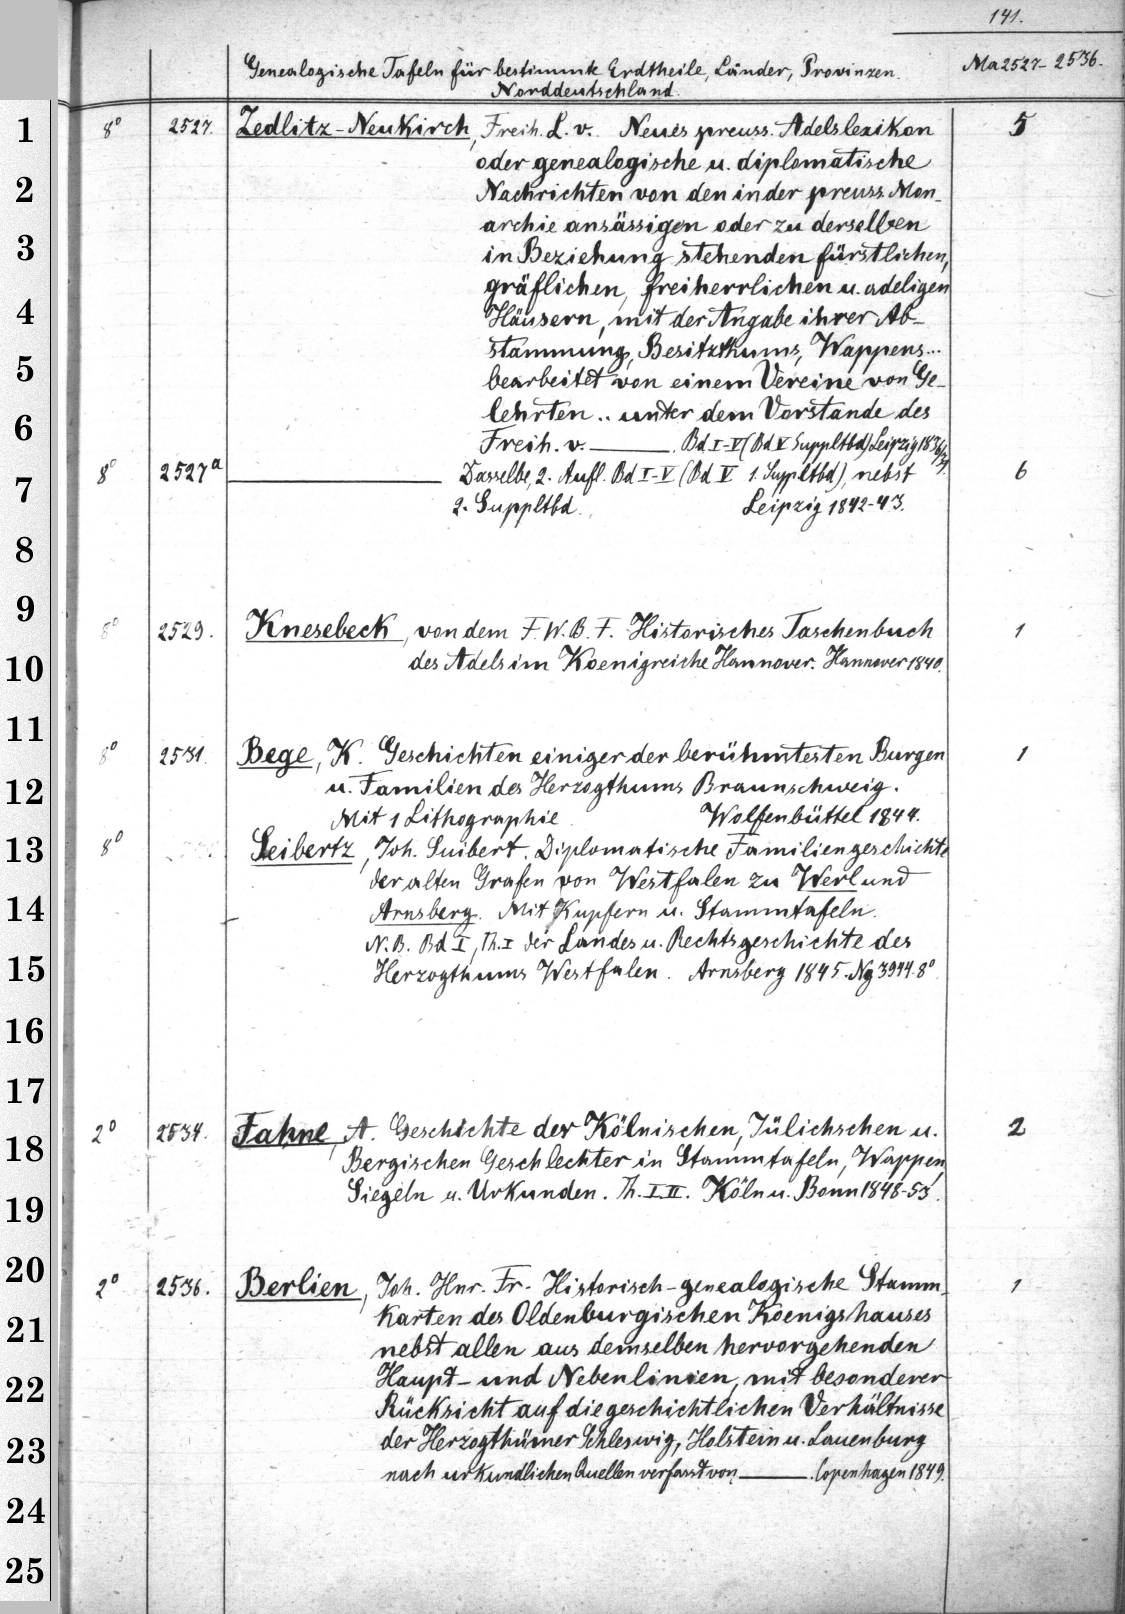 141.
Genealogische Tafeln für bestimmte Erdtheile, Länder, Provinzen. Ma 2527-2536.
Norddeutschland.
1 8° 2527. Zedlitz-Neukirch, Freih. L. v. Neues preuss. Adelslexikon 5
oder genealogische u. diplomatische
2 Nachrichten von den in der preuss. Mon-
archie ansässigen oder zu derselben
3 in Beziehung stehenden fürstlichen,
gräflichen, freiherrlichen u. adeligen
4 Häusern, mit der Angabe ihrer Ab-
stammung, Besitzthums, Wappens...
5 bearbeitet von einem Vereine von Ge-
lehrten .. unter dem Vorstande des
6 Freih. v. ——— . Bd I-V (Bd V Suppltbd) Leipzig 1836/39.
8° 2527a ——— Dasselbe, 2. Aufl. Bd I-V (Bd V 1. Suppltbd), nebst 6
7 2. Suppltbd. Leipzig 1842-43.
8
9 8° 2529. Knesebeck, von dem F. W. B. F. Historisches Taschenbuch 1
10 des Adels im Koenigreiche Hannover. Hannover 1840.
11 8° 2531. Bege, K. Geschichten einiger der berühmtesten Burgen 1
12 u. Familien des Herzogthums Braunschweig.
Mit 1 Lithographie. Wolfenbüttel 1844.
13 8° Seibertz, Joh. Suibert. Diplomatische Familiengeschichte
der alten Grafen von Westfalen zu Werl und
14 Arnsberg. Mit Kupfern u. Stammtafeln.
N. B. Bd I, Th. I der Landes u. Rechtsgeschichte des
15 Herzogthums Westfalen. Arnsberg 1845. Ng 3944. 8°
16
17
18 2° 2534. Fahne, A. Geschichte der Kölnischen, Jülichschen u. 2
Bergischen Geschlechter in Stammtafeln, Wappen,
19 Siegeln u. Urkunden. Th. I. II. Köln u. Bonn 1848-53.
20 2° 2536. Berlien, Joh. Hnr. Fr. Historisch-genealogische Stamm- 1
21 karten des Oldenburgischen Koenigshauses
nebst allen aus demselben hervorgehenden
22 Haupt- und Nebenlinien, mit besonderer
Rücksicht auf die geschichtlichen Verhältnisse
23 der Herzogthümer Schleswig, Holstein u. Lauenburg
nach urkundlichen Quellen verfasst von ——— . Copenhagen 1849.
24
25